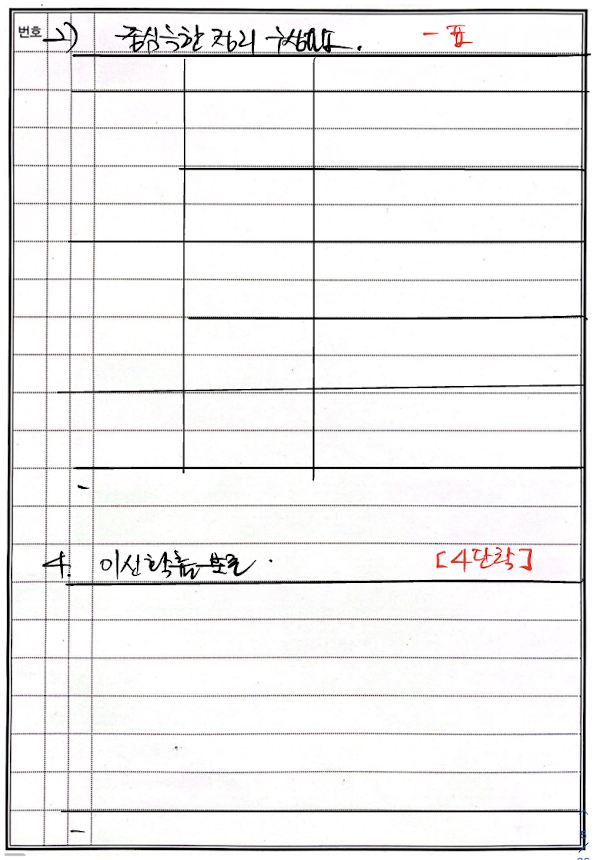 번호 2) 중심극한 정리 구성요소. - 표
-
4. 이산확률분포. [4단락]
-